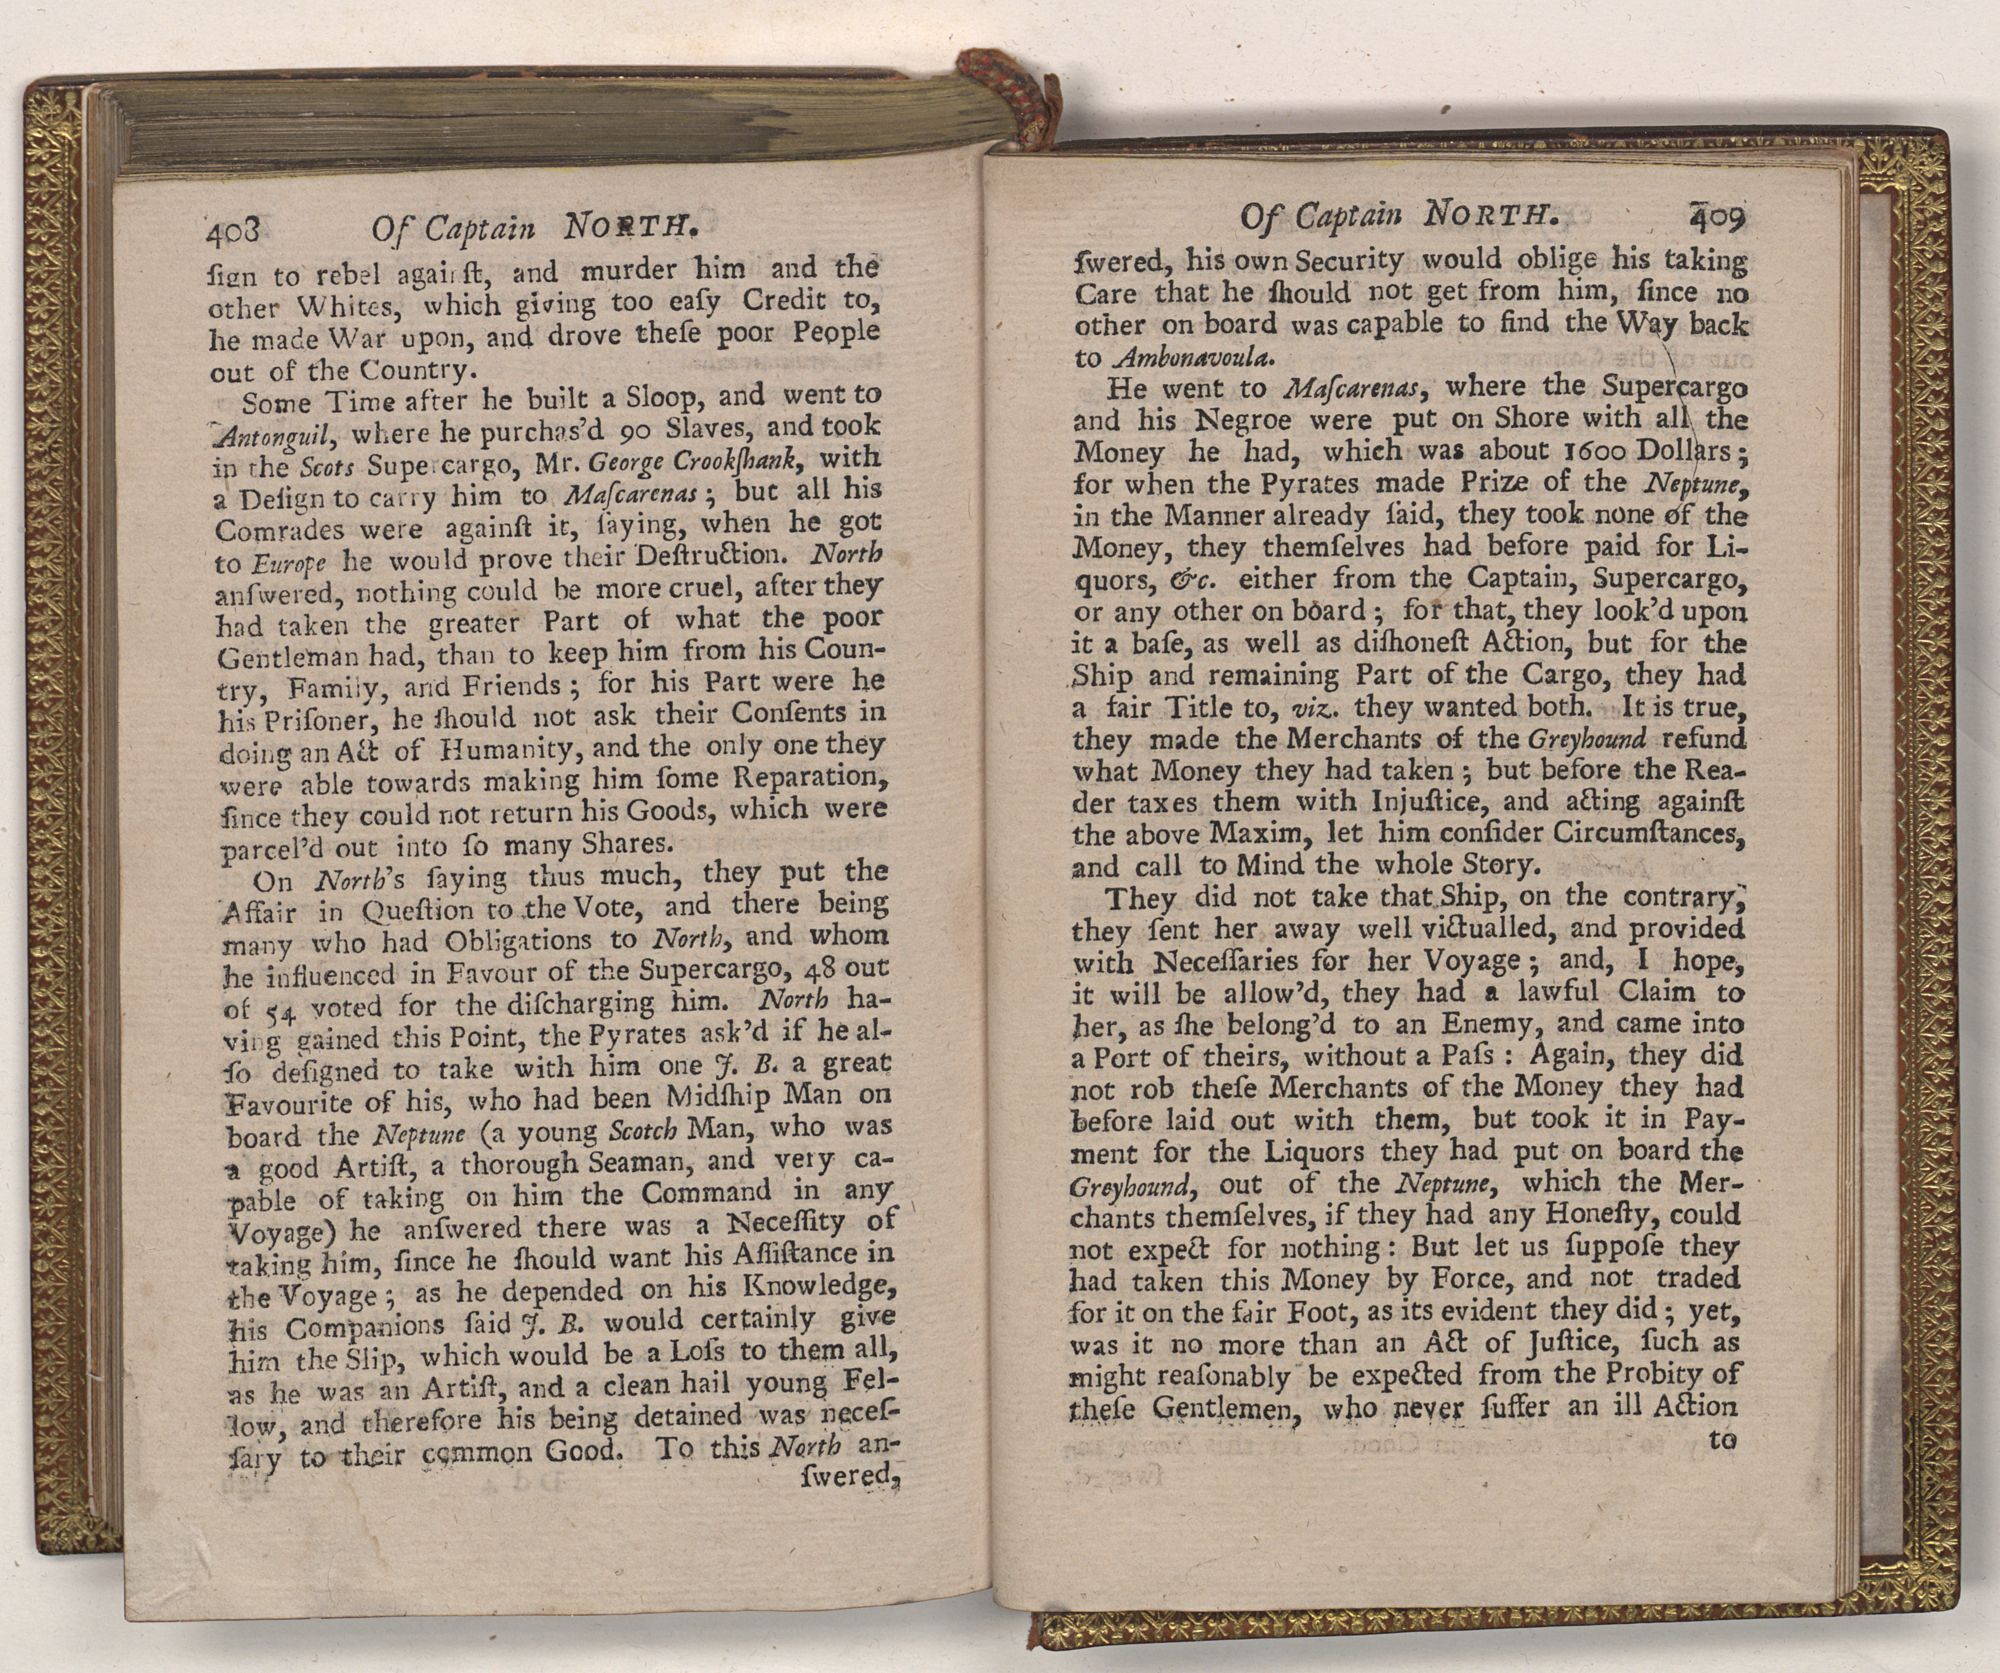 408 Of Captain NORTH.
ſign to rebel againſt, and murder him and the
other Whites, which giving too eaſy Credit to,
he made War upon, and drove theſe poor People
out of the Country.
Some Time after he built a Sloop, and went to
Antonguil, where he purchas'd 90 Slaves, and took
in the Scots Supercargo, Mr. George Crookſhank, with
a Deſign to carry him to Maſcarenas; but all his
Comrades were againſt it, ſaying, when he got
to Europe he would prove their Deſtruction. North
anſwered, nothing could be more cruel, after they
had taken the greater Part of what the poor
Gentleman had, than to keep him from his Coun-
try, Family, and Friends; for his Part were he
his Priſoner, he ſhould not ask their Conſents in
doing an Act of Humanity, and the only one they
were able towards making him ſome Reparation,
ſince they could not return his Goods, which were
parcel'd out into ſo many Shares.
On North's ſaying thus much, they put the
Affair in Queſtion to the Vote, and there being
many who had Obligations to North, and whom
he influenced in Favour of the Supercargo, 48 out
of 54 voted for the diſcharging him. North ha-
ving gained this Point, the Pyrates ask'd if he al-
ſo deſigned to take with him one J. B. a great
Favourite of his, who had been Midſhip Man on
board the Neptune (a young Scotch Man, who was
a good Artiſt, a thorough Seaman, and very ca-
pable of taking on him the Command in any
Voyage) he anſwered there was a Neceſſity of
taking him, ſince he ſhould want his Aſſiſtance in
the Voyage; as he depended on his Knowledge,
his Companions ſaid J. B. would certainly give
him the Slip, which would be a Loſs to them all,
as he was an Artiſt, and a clean hail young Fel-
low, and therefore his being detained was neceſ-
ſary to their common Good. To this North an-
ſwered,
Of Captain NORTH. 409
ſwered, his own Security would oblige his taking
Care that he ſhould not get from him, ſince no
other on board was capable to find the Way back
to Ambonavoula.
He went to Maſcarenas, where the Supercargo
and his Negroe were put on Shore with all the
Money he had, which was about 1600 Dollars;
for when the Pyrates made Prize of the Neptune,
in the Manner already ſaid, they took none of the
Money, they themſelves had before paid for Li-
quors, &c. either from the Captain, Supercargo,
or any other on board; for that, they look'd upon
it a baſe, as well as diſhoneſt Action, but for the
Ship and remaining Part of the Cargo, they had
a fair Title to, viz. they wanted both. It is true,
they made the Merchants of the Greyhound refund
what Money they had taken; but before the Rea-
der taxes them with Injuſtice, and acting againſt
the above Maxim, let him conſider Circumſtances,
and call to Mind the whole Story.
They did not take that Ship, on the contrary,
they ſent her away well victualled, and provided
with Neceſſaries for her Voyage; and, I hope,
it will be allow'd, they had a lawful Claim to
her, as ſhe belong'd to an Enemy, and came into
a Port of theirs, without a Paſs: Again, they did
not rob theſe Merchants of the Money they had
before laid out with them, but took it in Pay-
ment for the Liquors they had put on board the
Greyhound, out of the Neptune, which the Mer-
chants themſelves, if they had any Honeſty, could
not expect for nothing: But let us ſuppoſe they
had taken this Money by Force, and not traded
for it on the fair Foot, as its evident they did; yet,
was it no more than an Act of Juſtice, ſuch as
might reaſonably be expected from the Probity of
theſe Gentlemen, who never ſuffer an ill Action
to